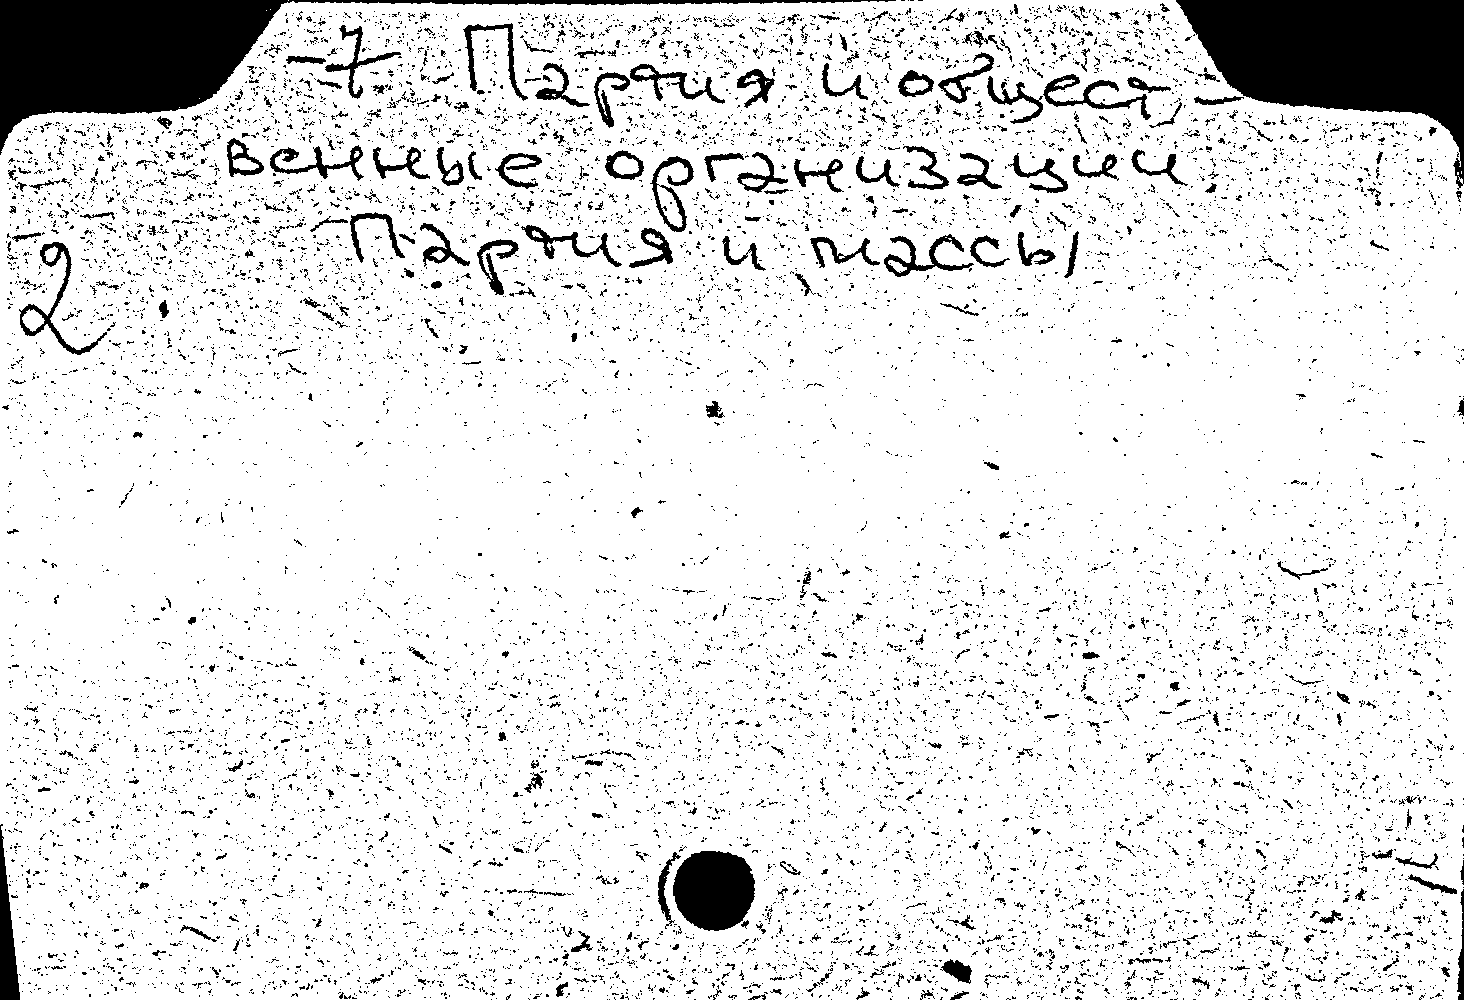 -7 Партия и общест-
венные организации.
Партия и массы
2